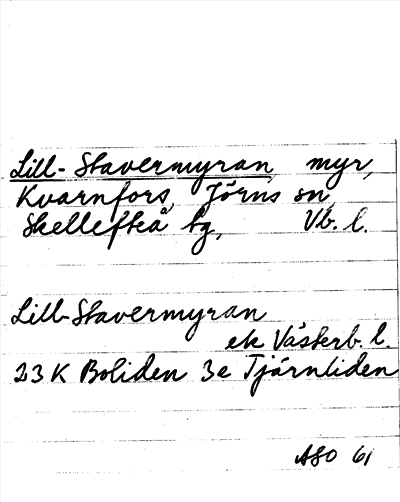 Lill-Stavermyran, myr,
Kvarnfors, Jörns sn,
Skellefteå tg, Vb. l.
Lill-Stavermyran
ek Västerb. l.
23 K Boliden 3e Tjärnliden
ASO 61